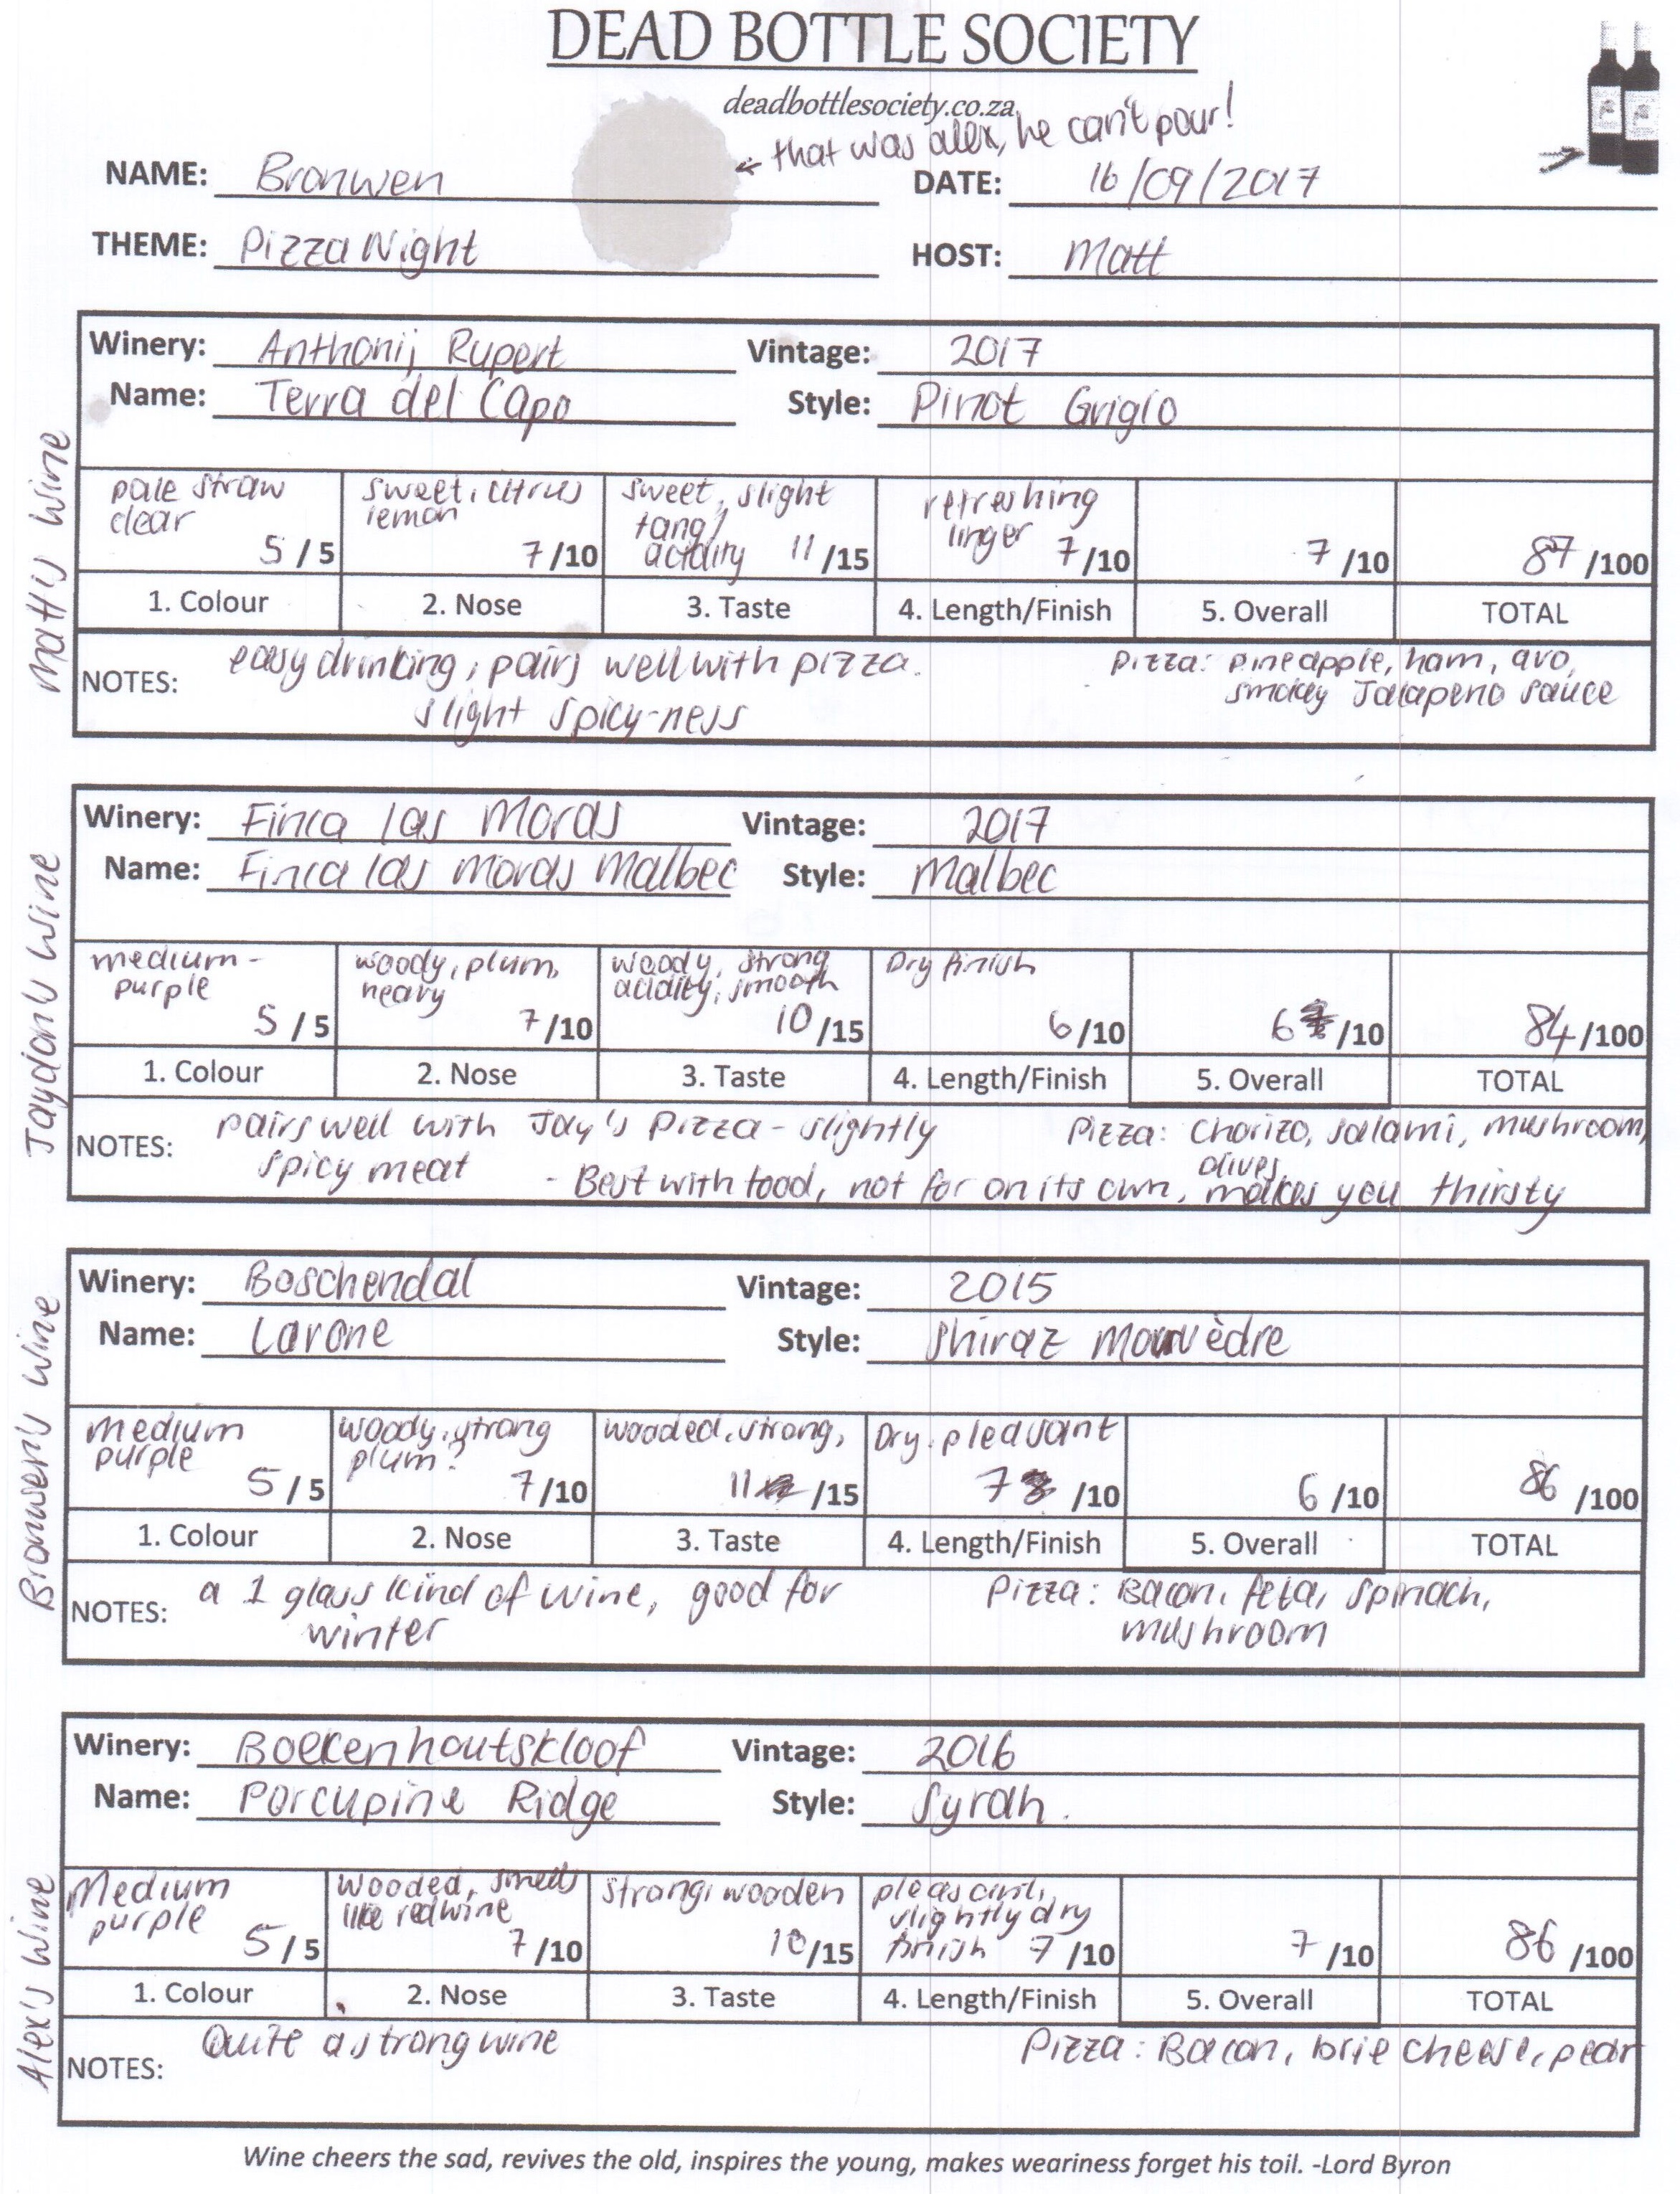 DEAD BOTTLE SOCIETY
deadbottlesociety.co.za
← that was alex, he can't pour!
NAME: Bronwen DATE: 16/09/2017
THEME: Pizza Night HOST: Matt
Matt's Wine
Winery: Anthonij Rupert Vintage: 2017
Name: Terra del Capo Style: Pinot Grigio
pale straw clear 5/5 sweet, citrus lemon 7/10 sweet, slight tang/ acidity 11/15 refreshing linger 7/10 7/10 87/100
1. Colour 2. Nose 3. Taste 4. Length/Finish 5. Overall TOTAL
NOTES: easy drinking, pairs well with pizza. Pizza: pineapple, ham, avo,
slight spicy-ness smokey Jalapeno sauce
Jaydon's Wine
Winery: Finca las Moras Vintage: 2017
Name: Finca las Moras Malbec Style: Malbec
medium-purple 5/5 woody, plum, heavy 7/10 woody, strong acidity, smooth 10/15 Dry finish 6/10 6/10 84/100
1. Colour 2. Nose 3. Taste 4. Length/Finish 5. Overall TOTAL
NOTES: pairs well with Jay's Pizza - slightly Pizza: Chorizo, salami, mushroom,
spicy meat olives
- Best with food, not for on its own, makes you thirsty
Bronwen's Wine
Winery: Boschendal Vintage: 2015
Name: Larone Style: Shiraz Mourvèdre
Medium purple 5/5 woody, strong plum? 7/10 wooded, strong, 11/15 Dry, pleasant 7/10 6/10 86/100
1. Colour 2. Nose 3. Taste 4. Length/Finish 5. Overall TOTAL
NOTES: a 1 glass kind of wine, good for Pizza: Bacon, feta, spinach,
winter mushroom
Alex's Wine
Winery: Boekenhoutskloof Vintage: 2016
Name: Porcupine Ridge Style: Syrah.
Medium purple 5/5 Wooded, smells like red wine 7/10 strong, wooden 10/15 pleasant, slightly dry finish 7/10 7/10 86/100
1. Colour 2. Nose 3. Taste 4. Length/Finish 5. Overall TOTAL
NOTES: Quite a strong wine Pizza: Bacon, brie cheese, pear
Wine cheers the sad, revives the old, inspires the young, makes weariness forget his toil. -Lord Byron